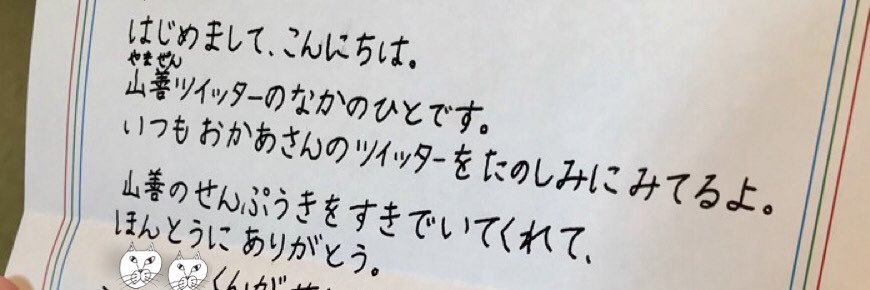 はじめまして、こんにちは。
やまぜん
山善ツイッターのなかのひとです。
いつもおかあさんのツイッターをたのしみにみてるよ。
山善のせんぷうきをすきでいてくれて、
ほんとうにありがとう。
くんが